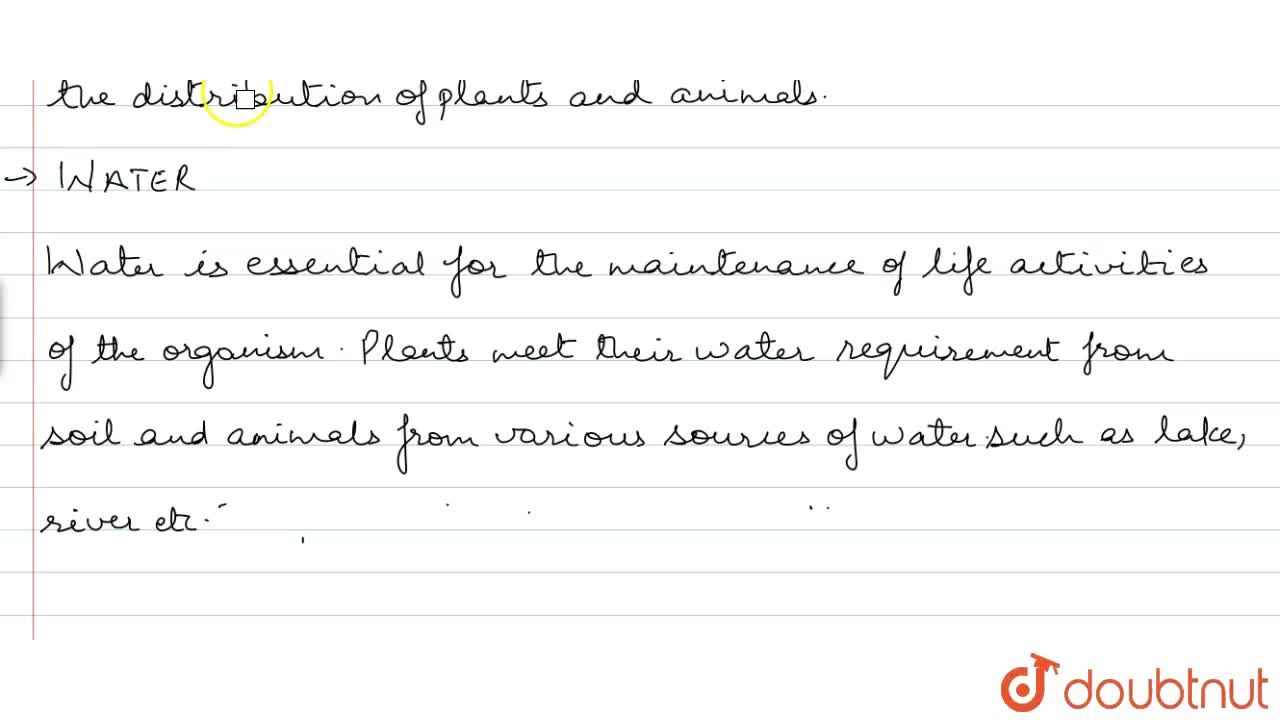 the distribution of plants and animals.
→ WATER
Water is essential for the maintenance of life activities
of the organism. Plants meet their water requirement from
soil and animals from various sources of water such as lake,
river etc.
doubtnut